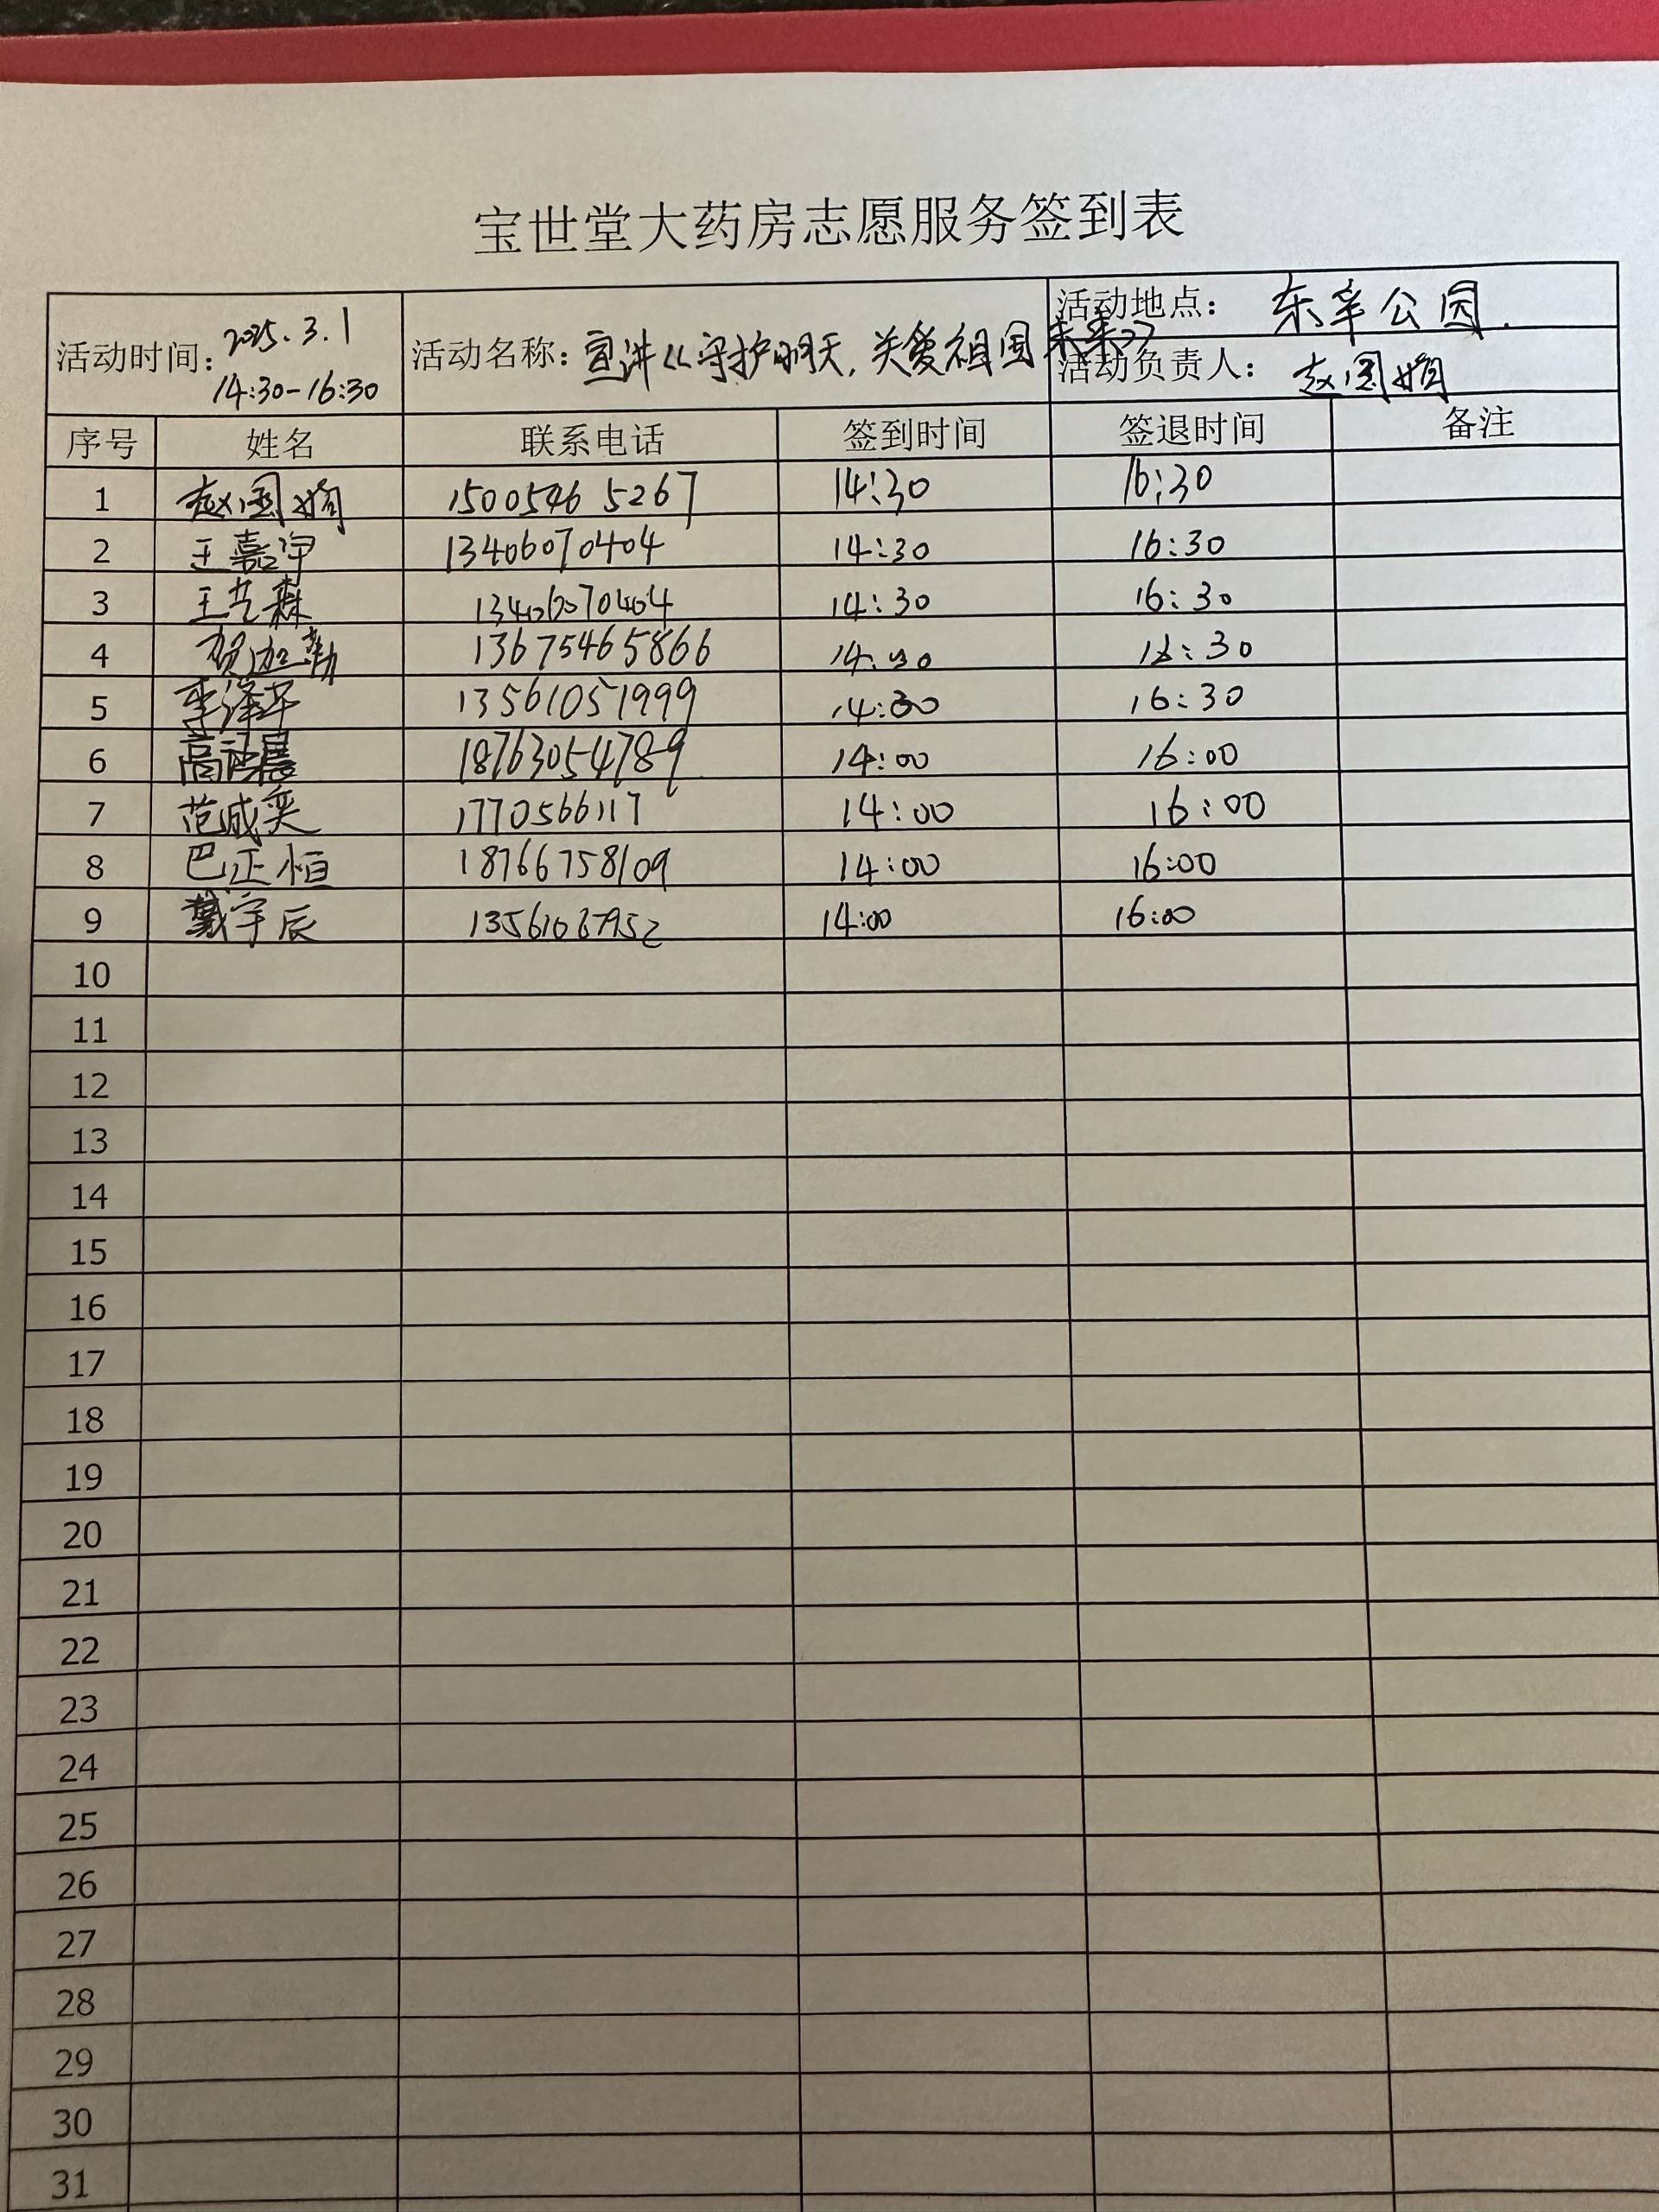 宝世堂大药房志愿服务签到表
活动时间: 2025.3.1 14:30-16:30
活动名称: 宣讲《守护明天,关爱祖国未来》
活动地点: 东辛公园.
活动负责人: 赵国娟
序号 姓名 联系电话 签到时间 签退时间 备注
1 赵国娟 15005465267 14:30 16:30
2 王嘉宇 13406070404 14:30 16:30
3 王艺霖 13406070404 14:30 16:30
4 贺 13675465866 14:30 16:30
5 李泽平 13561051999 14:30 16:30
6 高 晨 18763054789 14:00 16:00
7 范咸奕 1770566117 14:00 16:00
8 巴正恒 18766758109 14:00 16:00
9 戴宇辰 14:00 16:00
10
11
12
13
14
15
16
17
18
19
20
21
22
23
24
25
26
27
28
29
30
31